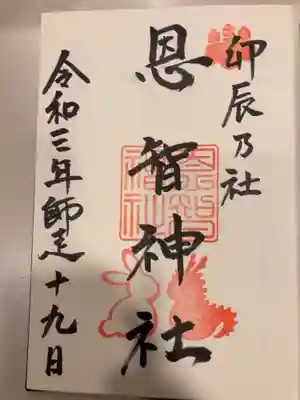 卯辰乃社
恩智神社
令和三年師走十九日
恩智神社